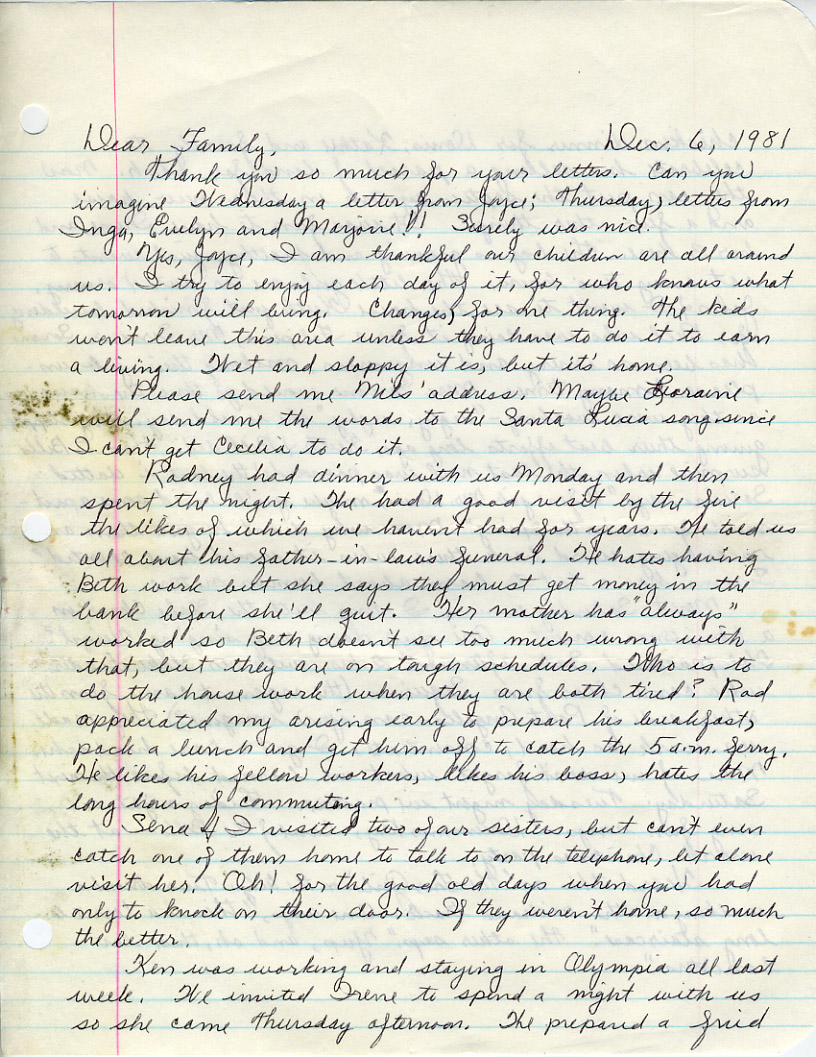 Dear Family, Dec. 6, 1981
Thank you so much for your letters. Can you
imagine Wednesday a letter from Joyce; Thursday, letters from
Inga, Evelyn and Marjorie!! Surely was nice.
Yes, Joyce, I am thankful our children are all around
us. I try to enjoy each day of it, for who knows what
tomorrow will bring. Changes, for one thing. The kids
won't leave this area unless they have to do it to earn
a living. Wet and sloppy it is, but it's home.
Please send me Nils' address. Maybe Loraine
will send me the words to the Santa Lucia song since
I can't get Cecelia to do it.
Rodney had dinner with us Monday and then
spent the night. We had a good visit by the fire
the likes of which we haven't had for years. He told us
all about his father-in-law's funeral. He hates having
Beth work but she says they must get money in the
bank before she'll quit. Her mother has "always"
worked so Beth doesn't see too much wrong with
that, but they are on tough schedules. Who is to
do the house work when they are both tired? Rod
appreciated my arising early to prepare his breakfast,
pack a lunch and get him off to catch the 5 a.m. ferry.
He likes his fellow workers, likes his boss, hates the
long hours of commuting.
Sena & I visited two of our sisters, but can't even
catch one of them home to talk to on the telephone, let alone
visit her. Oh! for the good old days when you had
only to knock on their door. If they weren't home, so much
the better.
Ken was working and staying in Olympia all last
week. We invited Irene to spend a night with us
so she came Thursday afternoon. We prepared a fried